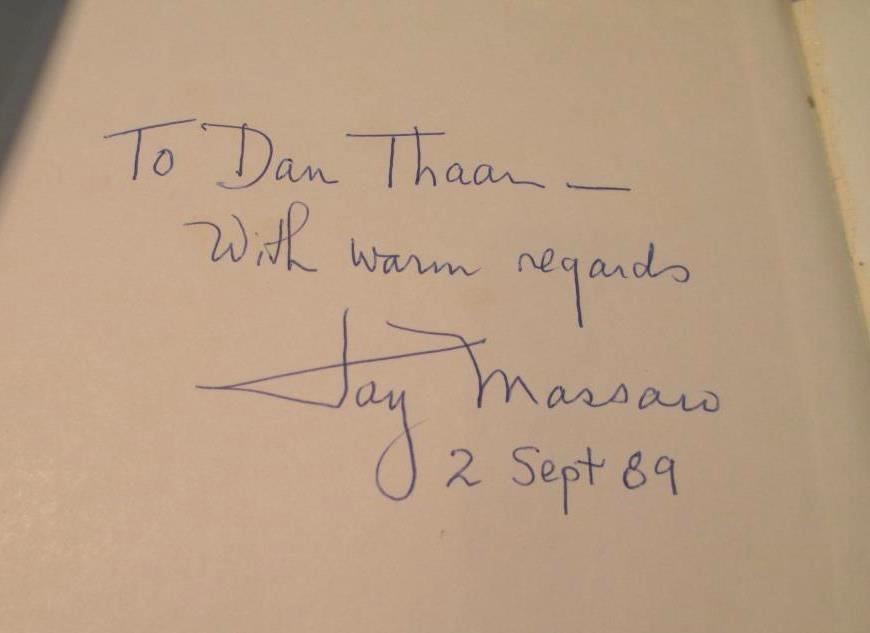 To Dan Thaan —
With warm regards
Jay Massaro
2 Sept 89